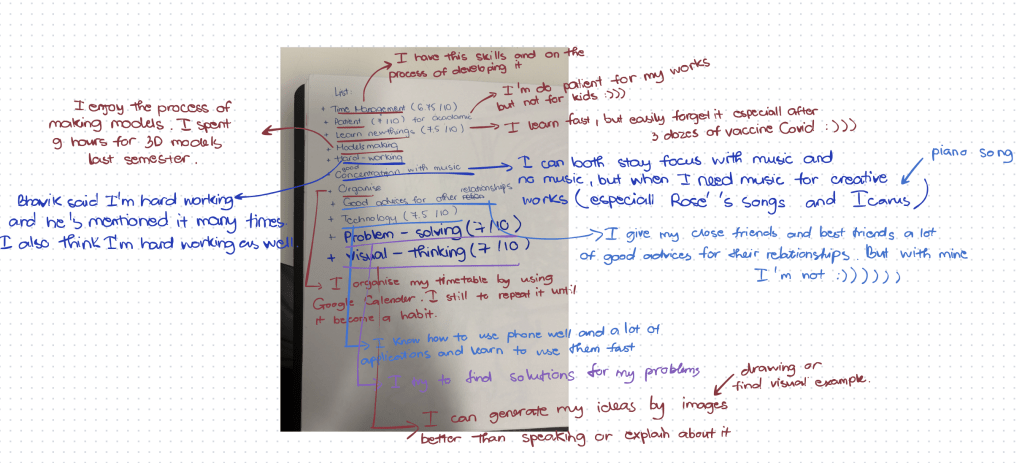 I have this skills and on the
process of developing it
I'm do patient for my works
but not for kids :)))
I learn fast, but easily forget it especiall after
3 dozes of vaccine Covid :)))
I enjoy the process of
making models. I spent
9 hours for 3D models
last semester.
List:
+ Time Management (6.75/10)
+ Patient (8/10) for academic
+ Learn new things (7.5/10)
+ Models making
+ Hard-working
good
+ Concentration with music
+ Organise
+ Good advices for other relationships
+ Technology (7.5/10)
+ Problem-solving (7/10)
+ Visual-thinking (7/10)
piano song
I can both stay focus with music and
no music, but when I need music for creative
works (especiall Rosé's songs and Icarus)
Bhavik said I'm hard working
and he's mentioned it many times.
I also think I'm hard working as well.
I give my close friends and best friends a lot
of good advices for their relationships. But with mine
I'm not :))))))
I organise my timetable by using
Google Calender. I still to repeat it until
it become a habit.
I know how to use phone well and a lot of
applications and learn to use them fast
I try to find solutions for my problems
drawing or
find visual example.
I can generate my ideas by images
better than speaking or explain about it